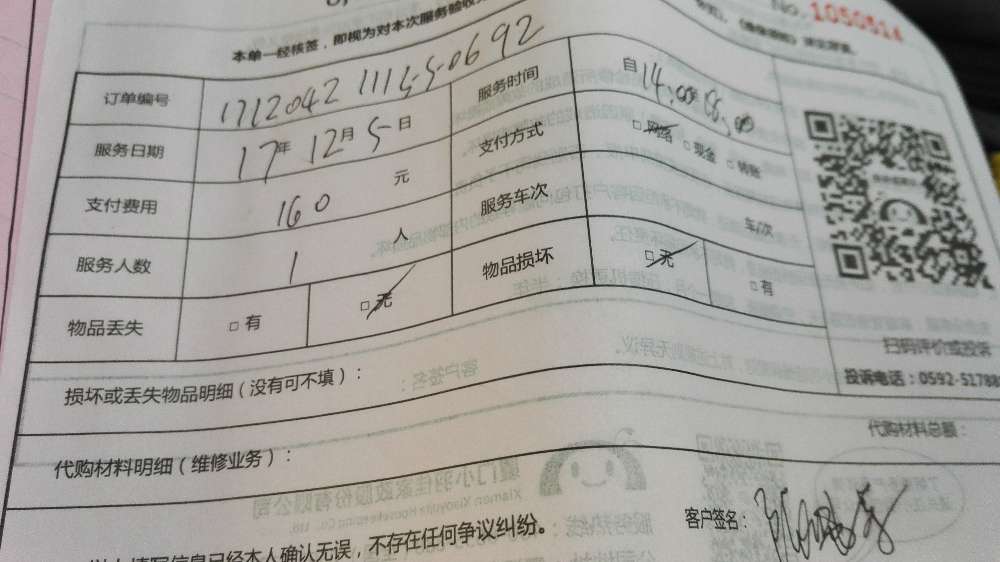 No. 1050514
本单一经核签,即视为对本次服务验收
订单编号 1712042 111 5-5-0692 服务时间 自14:00 18:00
服务日期 17年 12月 5日 支付方式 □网络 □现金 □转账
支付费用 160 元 服务车次 车/次
服务人数 1 人 物品损坏 □无 □有
物品丢失 □有 □无
扫码评价或投诉
损坏或丢失物品明细(没有可不填): 投诉电话:0592-51788
代购材料明细(维修业务): 代购材料总额:
客户签名:
填写信息已经本人确认无误,不存在任何争议纠纷。